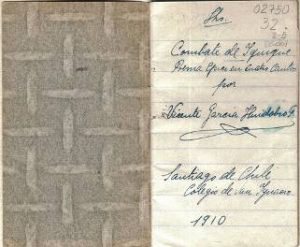 02750
32
Combate de Iquique
Poema épico en cuatro Cantos
por
Vicente García Huidobro F.
Santiago de Chile
Colegio de San Ignacio
1910